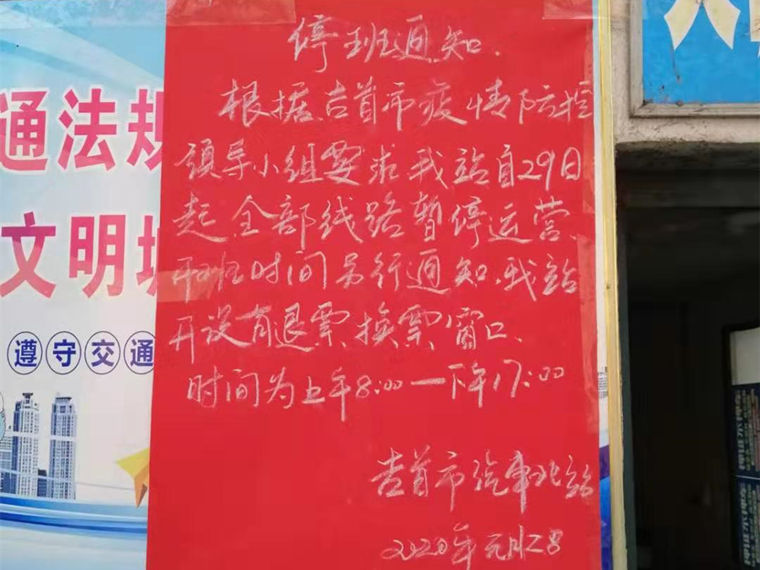 停班通知.
根据吉首市疫情防控
领导小组要求我站自29日
起全部线路暂停运营、
开班时间另行通知.我站
开设有退票换票窗口.
时间为上午8:00—下午17:00
吉首市汽车北站
2020年元月28
通法规
文明城
遵守交通